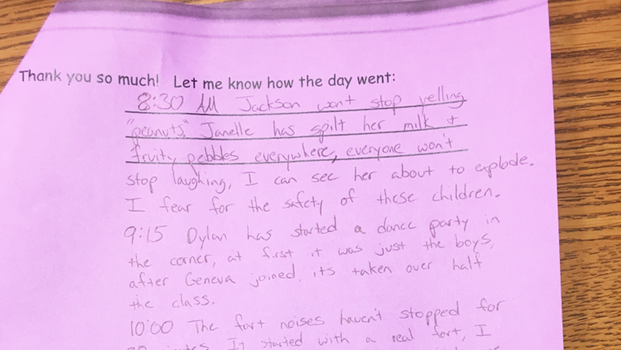 Thank you so much! Let me know how the day went:
8:30 AM Jackson wont stop yelling
"peanuts," Janelle has spilt her milk &
fruity pebbles everywhere, everyone won't
stop laughing, I can see her about to explode.
I fear for the safety of these children.
9:15 Dylan has started a dance party in
the corner, at first it was just the boys,
after Geneva joined, its taken over half
the class.
10:00 The fart noises haven't stopped for
It started with a real fart, I